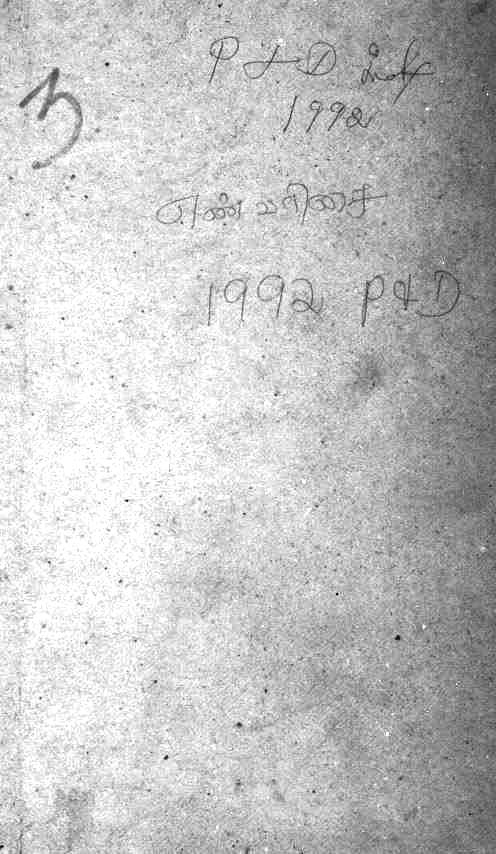 3
P & D
1992
எண் வரிசை
1992 P & D